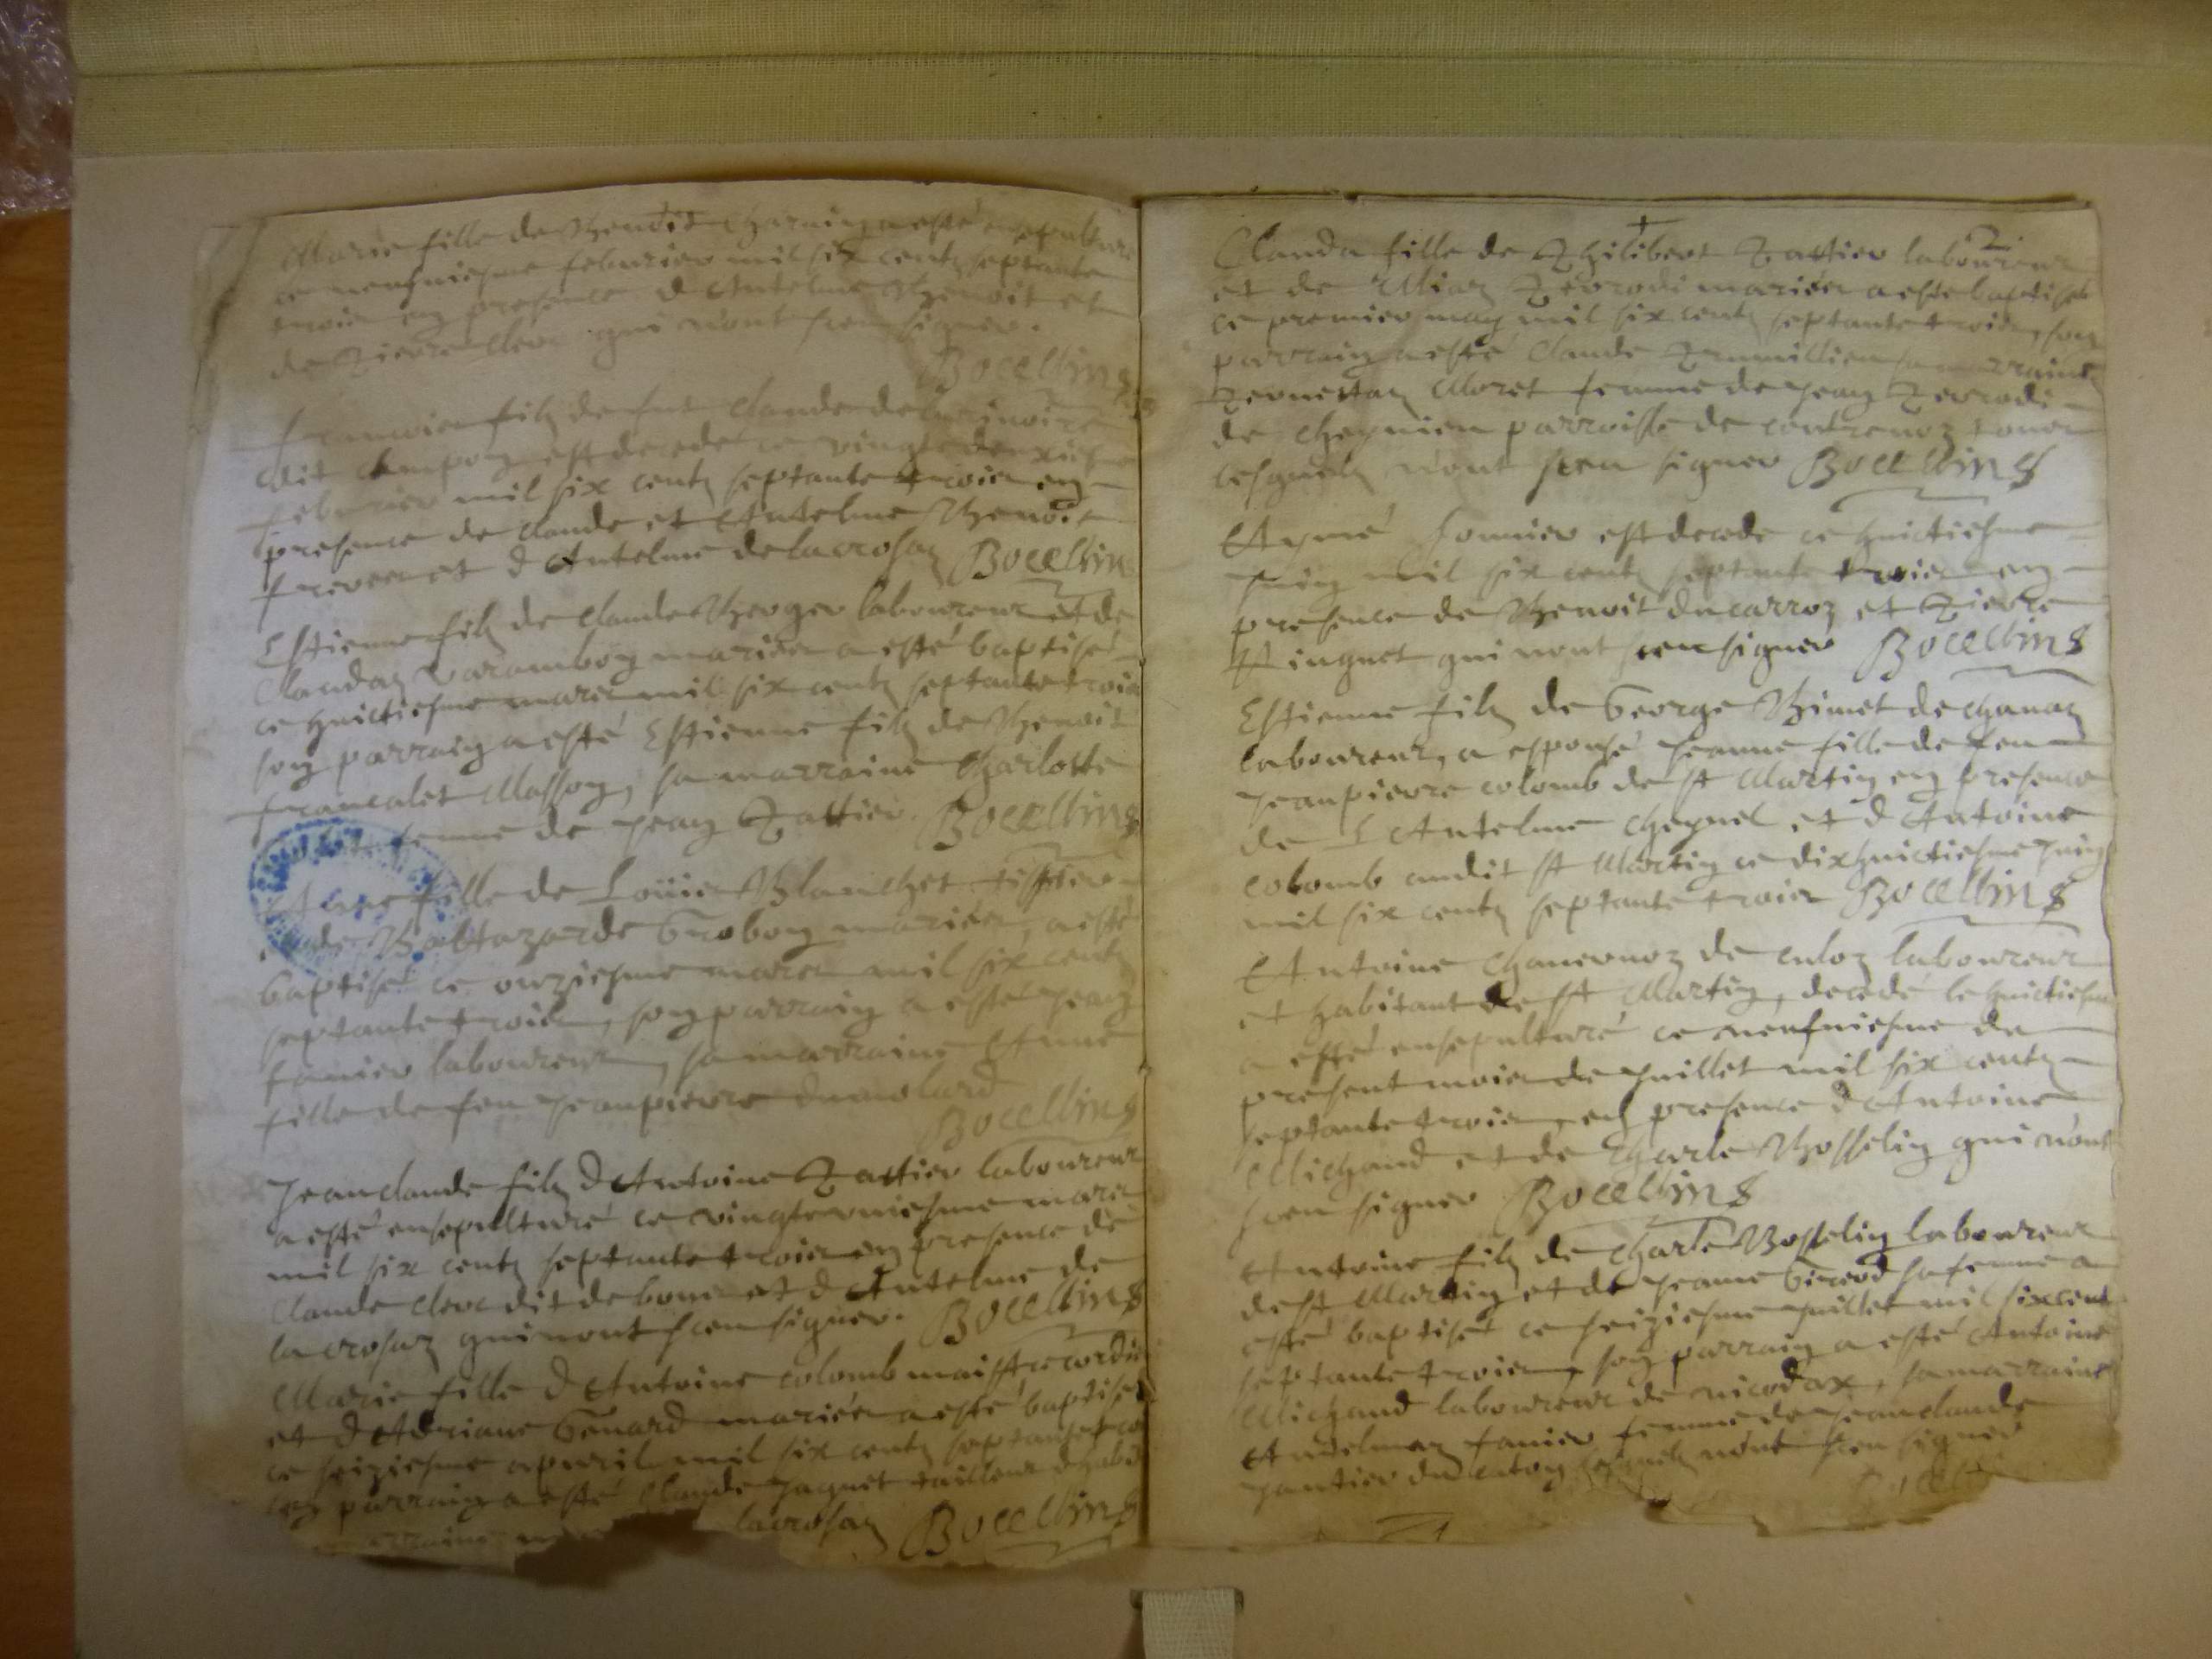 Marie fille de Benoit Charvin a esté ensepulturé
ce neufviesme febvrier mil six centz septante
trois en presence d Antelme Benoit et
de Pierre Clerc qui n'ont sceu signer.
Bocellins
filz de fut Claude
dit est decede ce vingtedeuxies
febvrier mil six centz septante trois en
presence de Claude et Antelme Benoit
freres et d Antelme de lacrosaz Bocellin
Estienne filz de Claude Berger laboureur et de
Claudaz Varambon mariés a esté baptisé
ce huictiesme mars mil six centz septante trois
son parrain a esté Estienne filz de Benoit
Francalet Masson, sa marraine Charlotte
femme de Jean Pattier. Bocellins
Anne fille de Loüis Blanchet tissier
de Baltazarde Grobon mariés, a esté
baptisé ce onziesme mars mil six centz
septante trois, son parrain a esté Jean
fanier laboureur, sa marraine Anne
fille de feu Jeanpierre dumolard
Bocellins
Jeanclaude filz d Antoine Pattier laboureur
a esté ensepulturé ce vingtevniesme mars
mil six centz septante trois en presence de
Claude Clerc dit debour et d Antelme de
lacrosaz qui n'ont sceu signer. Bocellins
Marie fille d Antoine Colomb maistre cordie
et d Adriane Genard mariés a esté baptisé
ce seiziesme apvril mil six centz septantetro
son parrain a esté Claude Jaquet tailleur d habi
marraine lacrosaz Bocellins
Clauda fille de Philibert Pattier laboureur
et de Miaz Perrodi mariés a esté baptisée
ce premier may mil six centz septante trois, son
parrain a esté Claude sa marraine
Pernettaz Moret femme de Jean Perrodi
de Cheynieu parroisse de contrevoz tous
lesquelz n'ont sceu signer Bocellins
Aymé fonnier est decede ce huictiesme
juin mil six centz septante trois en
presence de Benoit ducarroz et Pierre
Pinguet qui n'ont sceu signer Bocellins
Estienne filz de George Bimet de chanaz
laboureur, a espousé Jeanne fille de feu
Jeanpierre colomb de st Martin en presence
de S Antelme Cheynel et d Antoine
colomb dudit st Martin ce dixhuictiesme juin
mil six centz septante trois Bocellins
Antoine Chanernoz de culoz laboureur
et habitant de st Martin, decedé le huictiesme
a esté ensepulturé ce neufviesme de
present mois de juillet mil six centz
septante trois, en presence d Antoine
Michaud et de Charle Bosselin qui n'ont
sceu signer Bocellins
Antoine filz de Charle Bosselin laboureur
de st Martin et de Jeanne Girerd sa femme a
esté baptisé ce seiziesme juillet mil sixcent
septante trois, son parrain a esté Antoine
Michaud laboureur de nicodax, sa marraine
Antelmaz fanier femme de Jeanclaude
Jantier lesquelz n'ont sceu signer